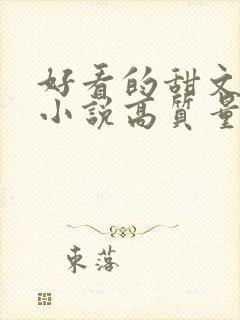 好看的甜文
小説高質量
東落